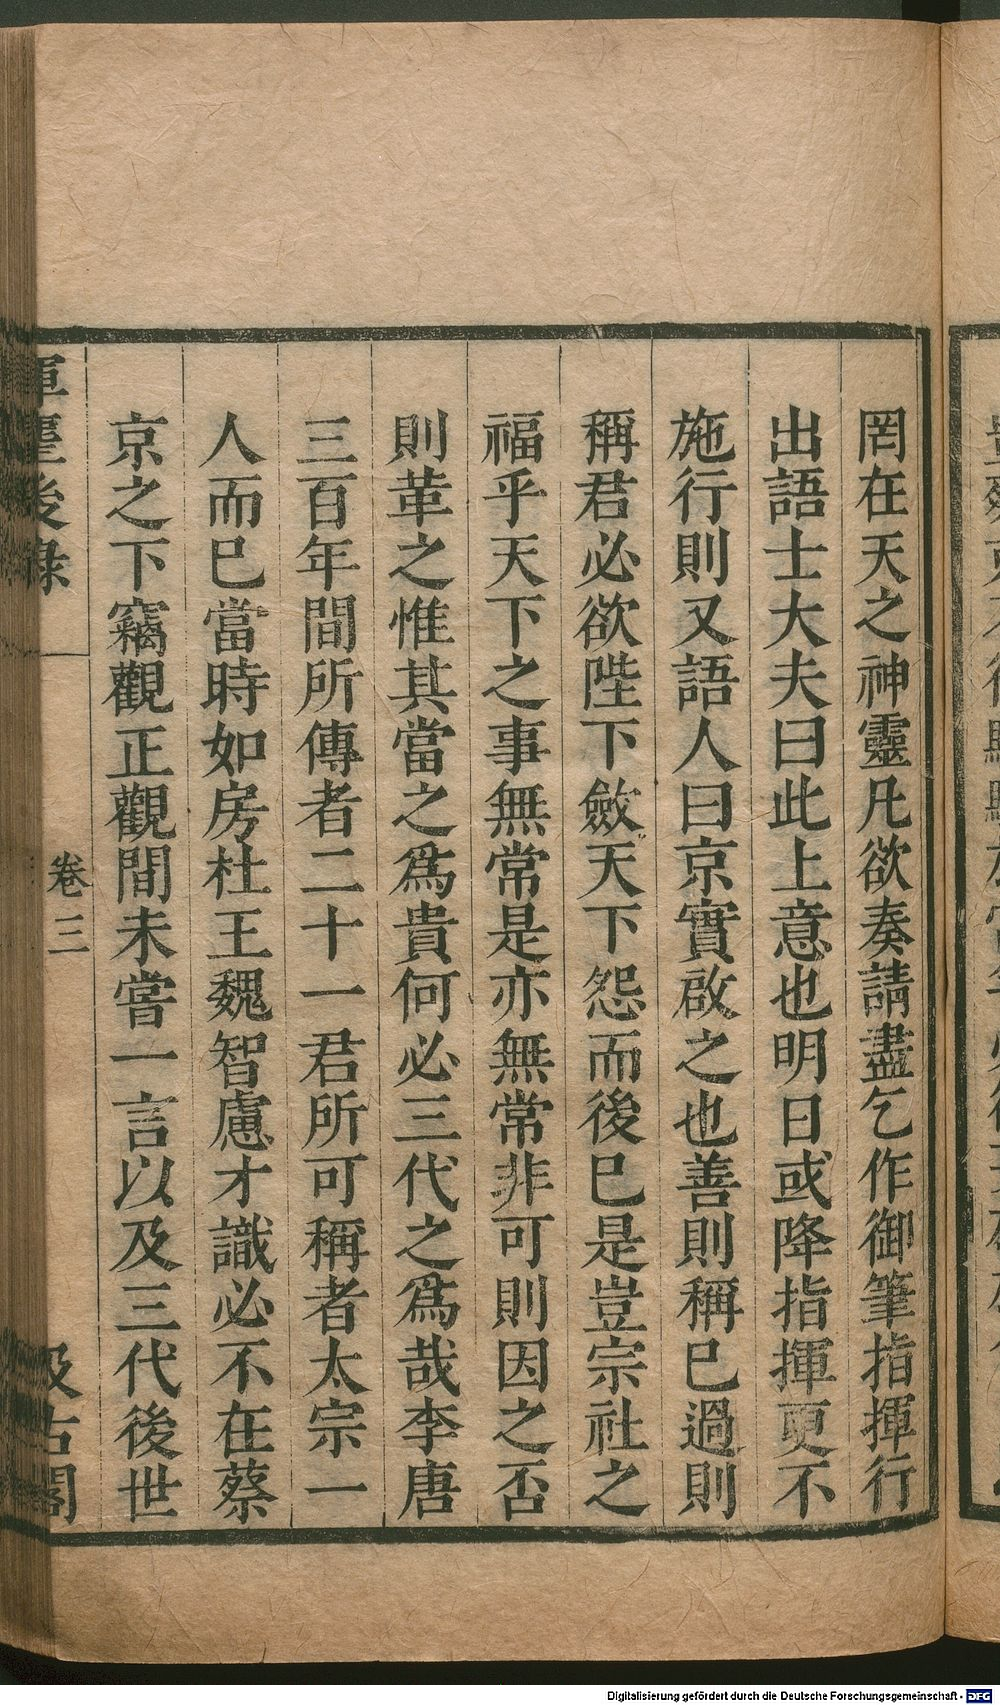 罔在天之神靈凡欲奏請盡乞作御筆指揮行
出語士大夫曰此上意也明日或降指揮更不
施行則又語人曰京實啟之也善則稱巳過則
稱君必欲陛下斂天下怨而後巳是豈宗社之
福乎天下之事無常是亦無常非可則因之否
則革之惟其當之爲貴何必三代之爲哉李唐
三百年間所傳者二十一君所可稱者太宗一
人而巳當時如房杜王魏智慮才識必不在蔡
京之下竊觀正觀間未嘗一言以及三代後世
後錄
卷三
汲古閣
Digitalisierung gefördert durch die Deutsche Forschungsgemeinschaft - DFG